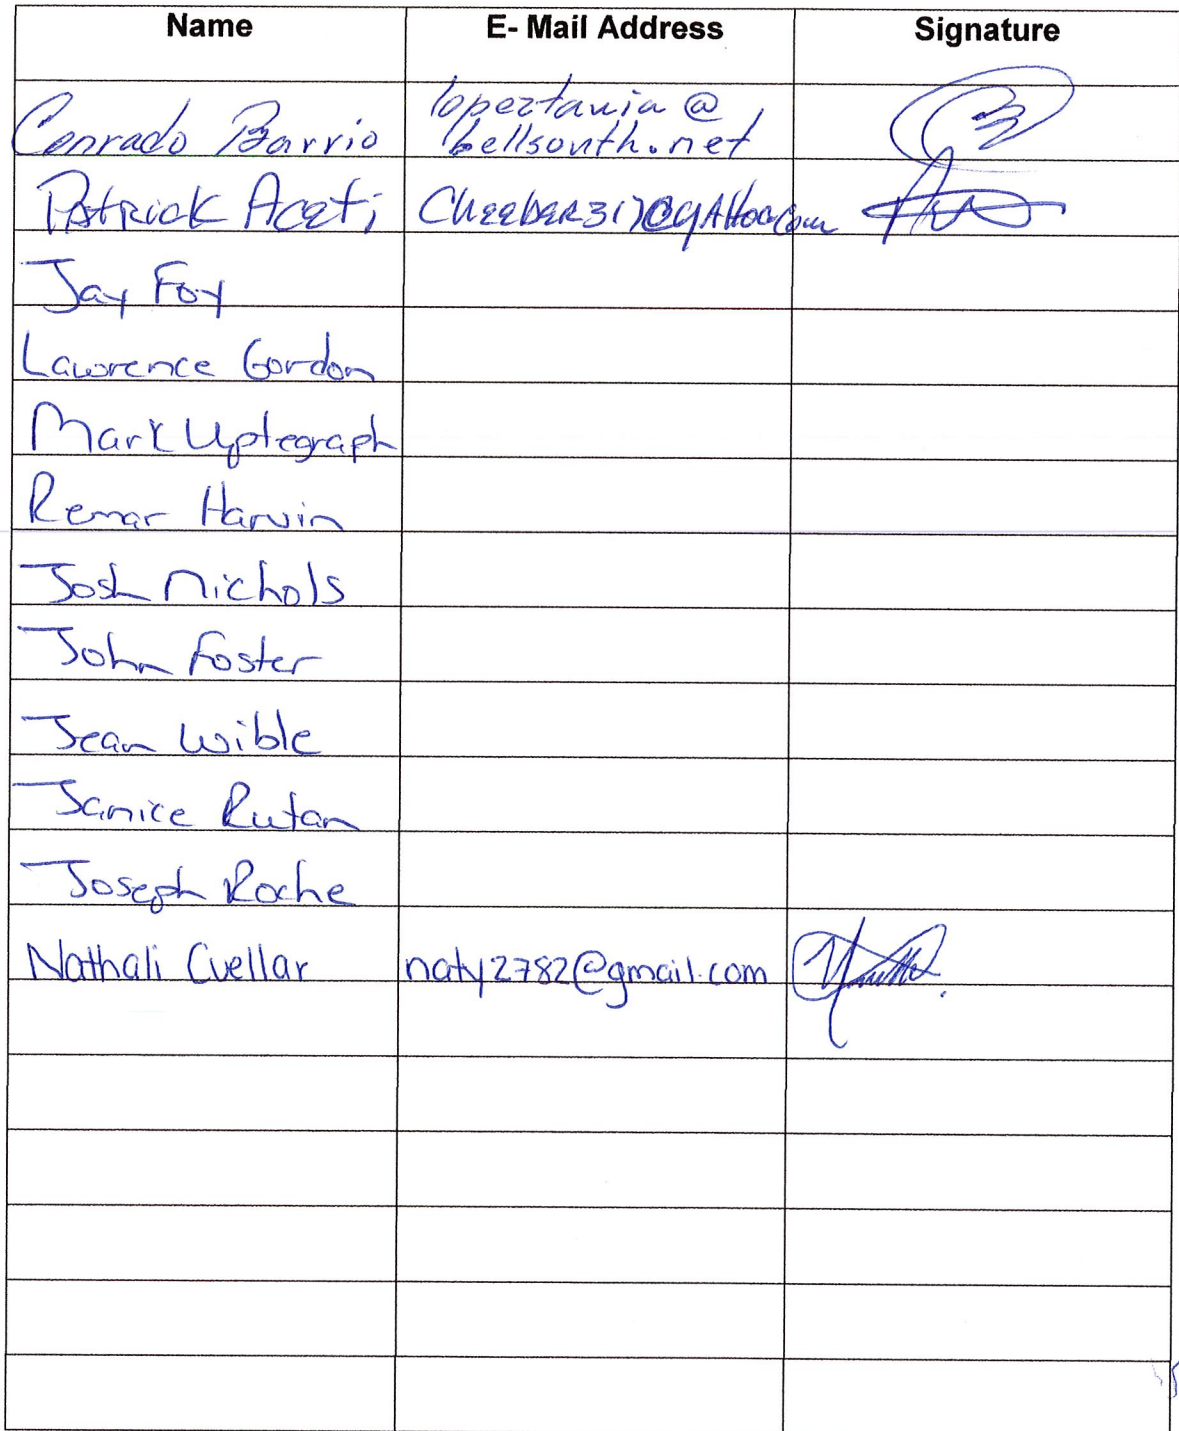 Name E- Mail Address Signature
lopeztania @
Conrado Barrio bellsouth.net
Patrick Aceti
Jay Foy
Lawrence Gordon
Mark Uptegraph
Remar Harvin
Josh Nichols
John Foster
Jean Wible
Janice Rutan
Joseph Roche
Nathali Cuellar naty2782@gmail.com